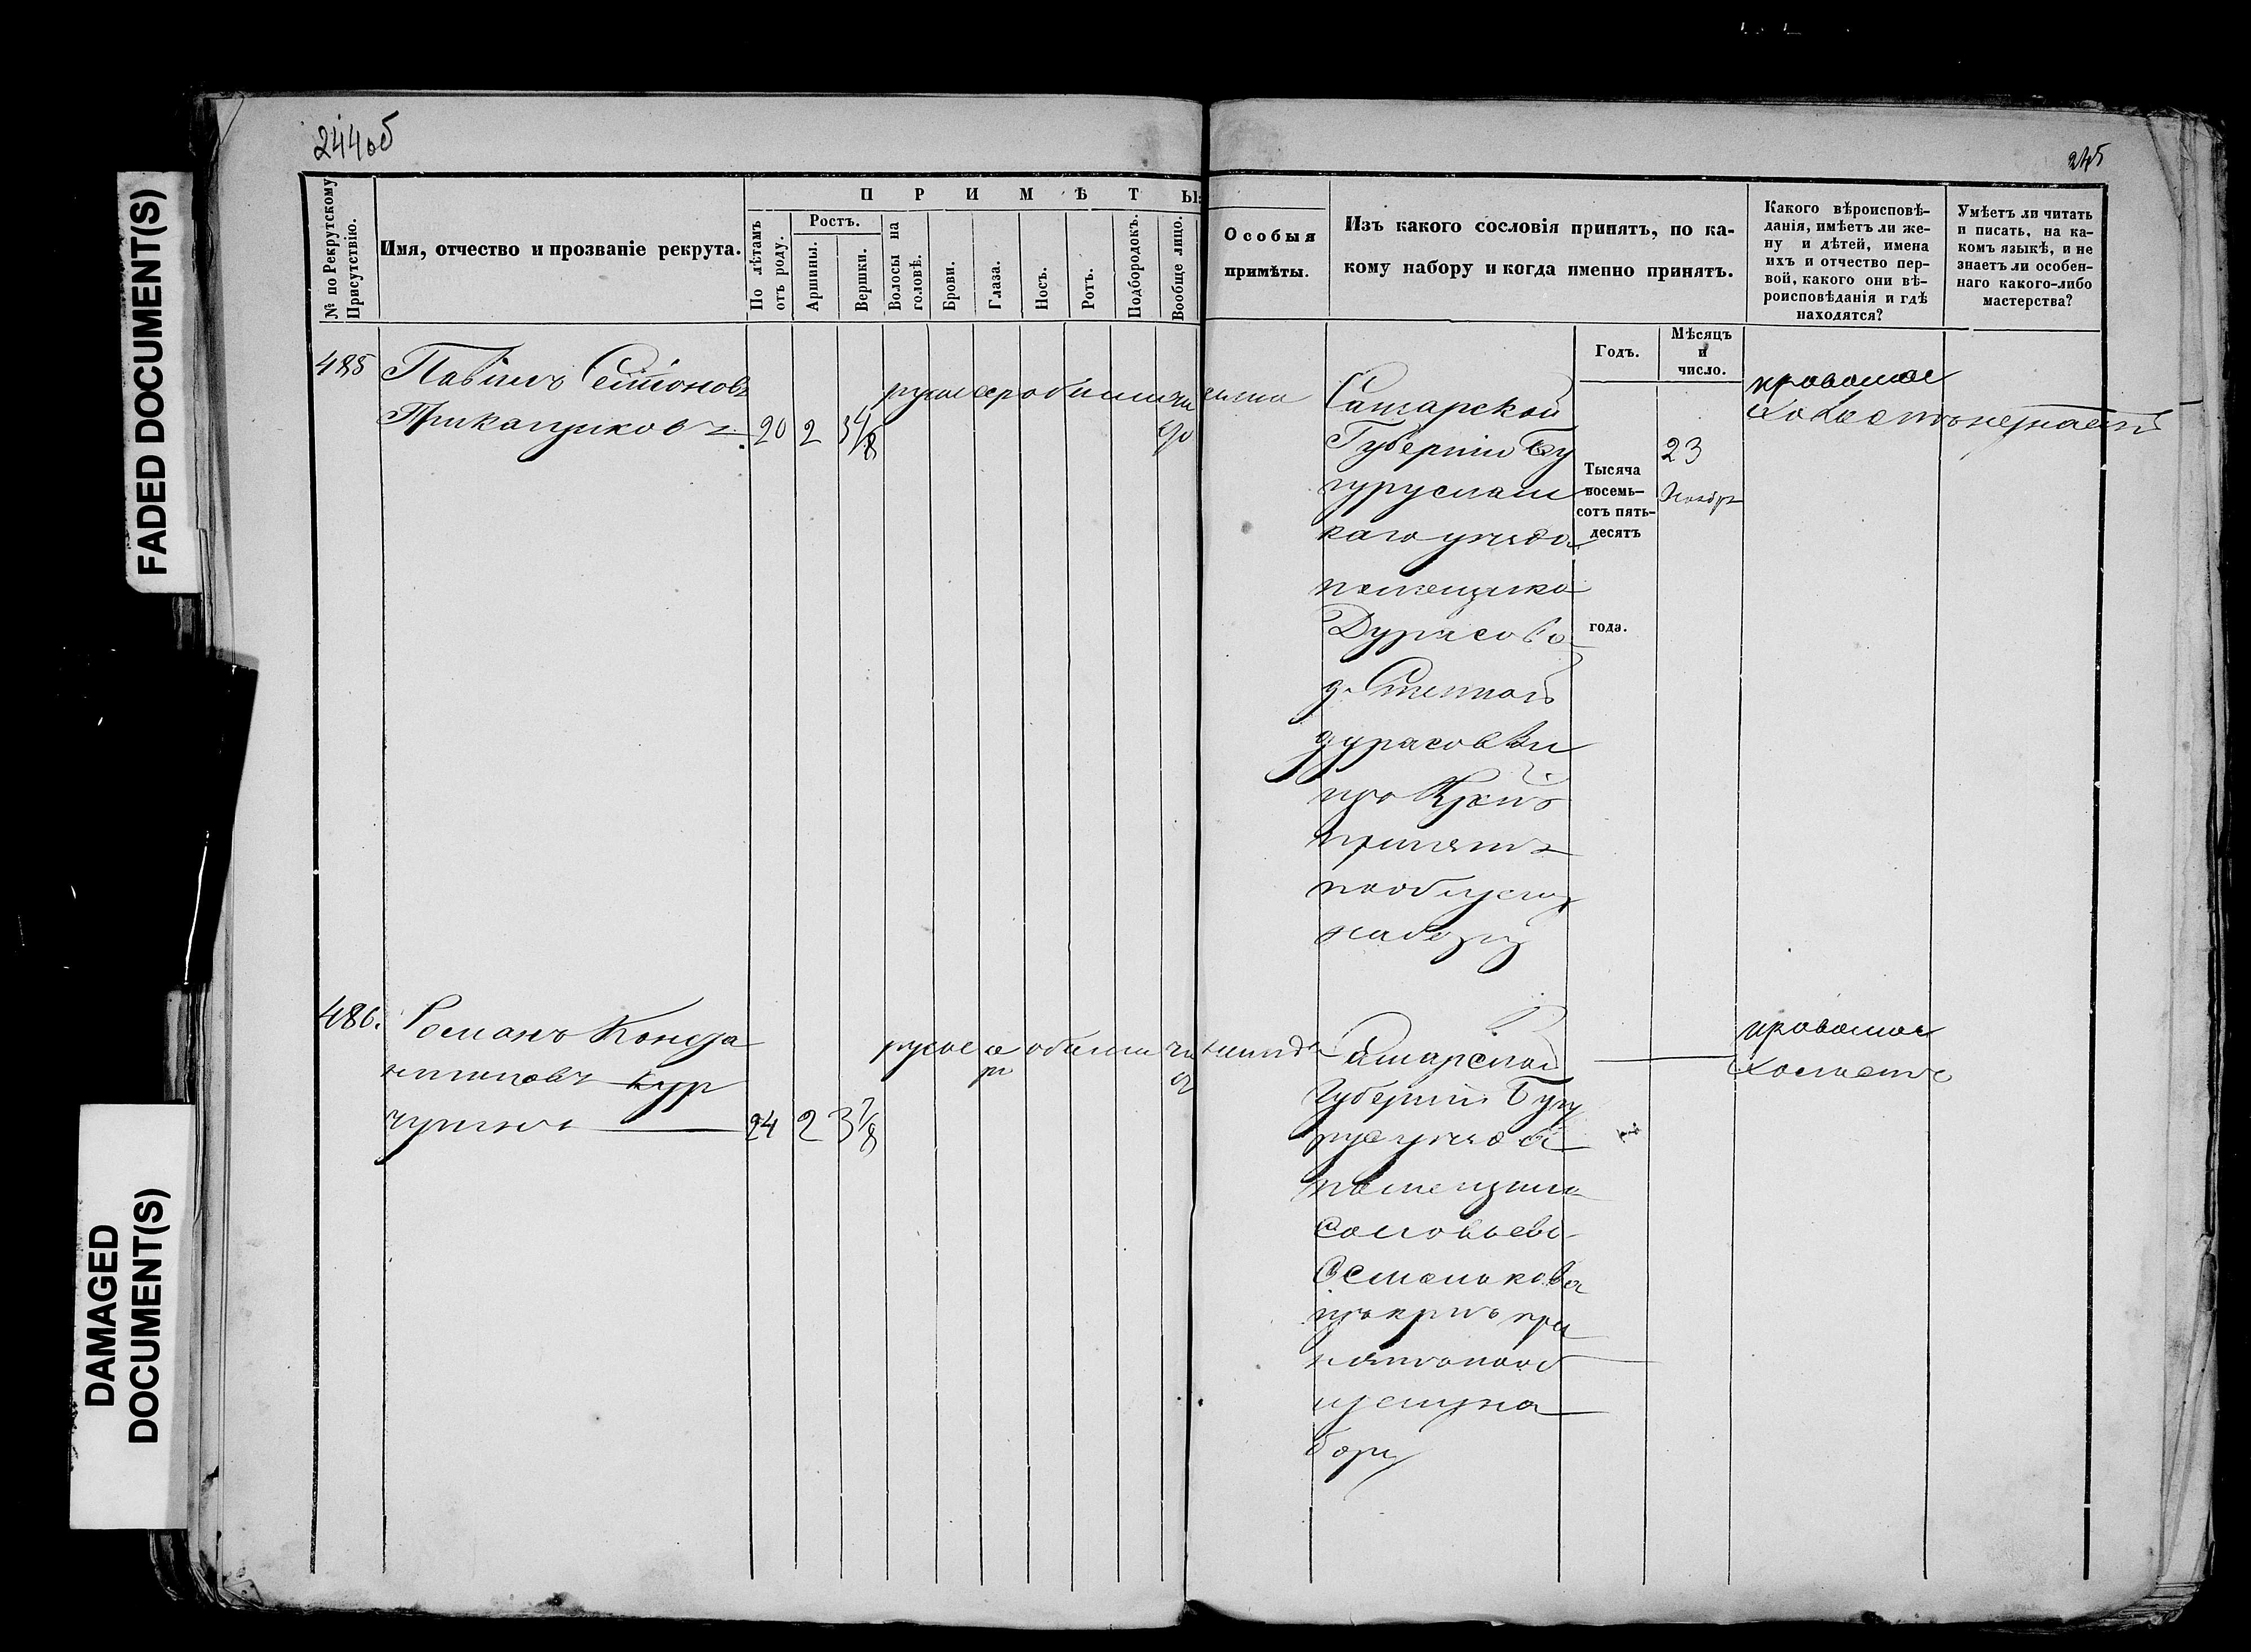 FADED DOCUMENT(S)
DAMAGED
DOCUMENT(S)
244об
245
№ по Рекрутскому
Присутствію.
Имя, отчество и прозваніе рекрута.
ПРИМѢТЫ:
По лѣтамъ
отъ роду.
Ростъ.
Аршины.
Вершки.
Волосы на
головѣ.
Брови.
Глаза.
Носъ.
Ротъ.
Подбородокъ.
Вообще лицо.
Особыя
примѣты.
Изъ какого сословія принятъ, по ка-
кому набору и когда именно принятъ.
Какого вѣроисповѣ-
данія, имѣетъ ли же-
ну и дѣтей, имена
ихъ и отчество пер-
вой, какого они вѣ-
роисповѣданія и гдѣ
находятся?
Умѣетъ ли читать
и писать, на ка-
комъ языкѣ, и не
знаетъ ли особен-
наго какого-либо
мастерства?
Годъ.
Мѣсяцъ
и
число.
485
Павелъ Семионовъ
Прикащиковъ
20 2 3 4/8
русые
Самарской
Губерніи Бу
гуруслан
каго уезда
помещика
Дурасова
д. Степной
дурасовки
изъ Крѣп
принятъ
по общему
набору
Тысяча
восемь-
сотъ пять-
десятъ
года.
23
Ноября
православ
холостъ незнаетъ
486.
Романъ Кондра
24 2 3 7/8
русые се
Самарской
Губерніи Бугу
рус уезда
помещика
Соловьева
изъ крѣп при
нятъ по об
щему на
бору
православ
холостъ